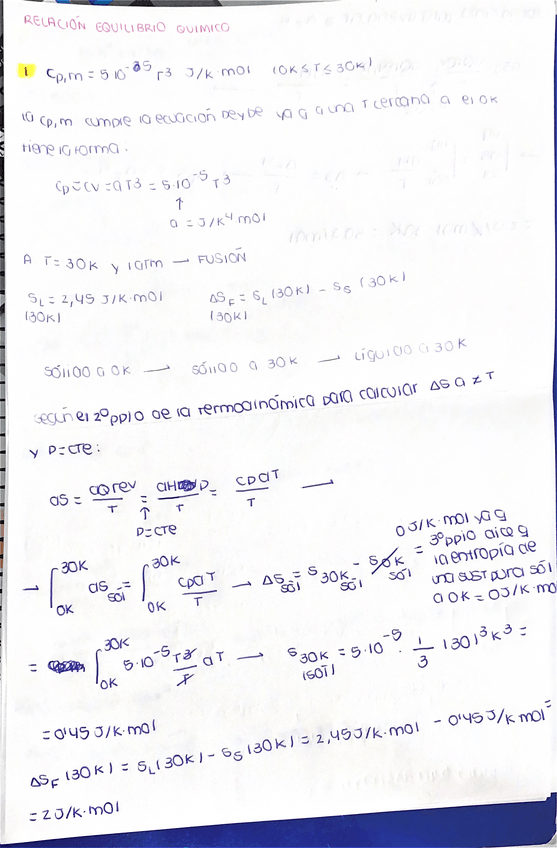 RELACIÓN EQUILIBRIO QUIMICO
1 Cp,m = 5 10⁻⁵ T³ J/K·mol (0K ≤ T ≤ 30K)
la Cp,m cumple la ecuación Deybe ya q a una T cercana a el 0K
tiene la forma.
Cp ≃ Cv = aT³ = 5·10⁻⁵ T³
↑
a = J/K⁴·mol
A T = 30K y 1atm → FUSIÓN
SL = 2,45 J/K·mol ΔSF = SL (30K) - SS (30K)
(30K) (30K)
sólido a 0K → sólido a 30K → líquido a 30K
según el 2º ppio de la termodinámica para calcular ΔS a ≠ T
y P=cte:
dS = dQrev/T = dHP/T = CpdT/T →
↑
P=cte
→ ∫0K^30K dS sól = ∫0K^30K CpdT/T → ΔS sól = S30K sól - S0K sól = 0 J/K·mol ya q
3º ppio dice q
la entropía de
una sust pura sól
a 0K = 0 J/K·mol
= ∫0K^30K 5·10⁻⁵ T³/T dT → S30K (sól) = 5·10⁻⁵ · 1/3 (30)³ K³ =
= 0'45 J/K·mol
ΔSF (30K) = SL (30K) - SS (30K) = 2,45 J/K·mol - 0'45 J/K mol =
= 2 J/K·mol